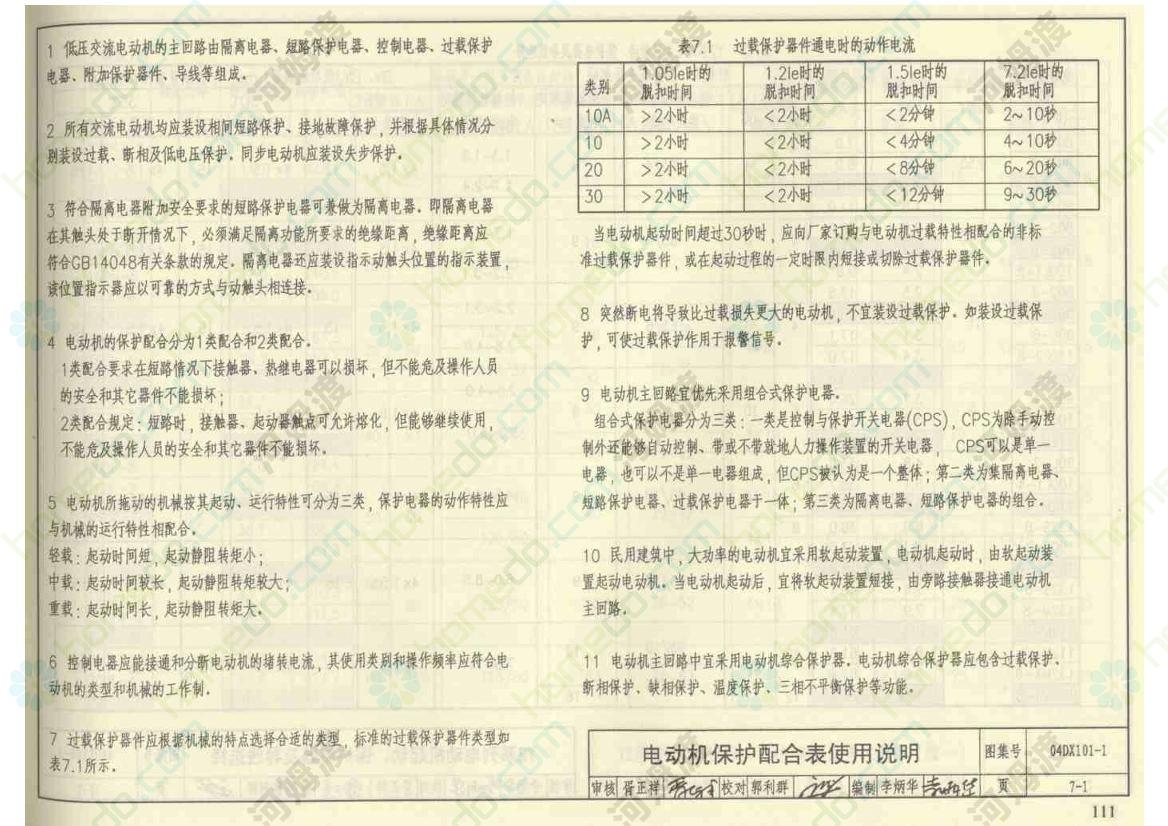 1 低压交流电动机的主回路由隔离电器、短路保护电器、控制电器、过载保护
电器、附加保护器件、导线等组成。
2 所有交流电动机均应装设相间短路保护、接地故障保护,并根据具体情况分
别装设过载、断相及低电压保护。同步电动机应装设失步保护。
3 符合隔离电器附加安全要求的短路保护电器可兼做为隔离电器。即隔离电器
在其触头处于断开情况下,必须满足隔离功能所要求的绝缘距离,绝缘距离应
符合GB14048有关条款的规定。隔离电器还应装设指示动触头位置的指示装置,
该位置指示器应以可靠的方式与动触头相连接。
4 电动机的保护配合分为1类配合和2类配合。
1类配合要求在短路情况下接触器、热继电器可以损坏,但不能危及操作人员
的安全和其它器件不能损坏;
2类配合规定:短路时,接触器、起动器触点可允许熔化,但能够继续使用,
不能危及操作人员的安全和其它器件不能损坏。
5 电动机所拖动的机械按其起动、运行特性可分为三类,保护电器的动作特性应
与机械的运行特性相配合。
轻载:起动时间短,起动静阻转矩小;
中载:起动时间较长,起动静阻转矩较大;
重载:起动时间长,起动静阻转矩大。
6 控制电器应能接通和分断电动机的堵转电流,其使用类别和操作频率应符合电
动机的类型和机械的工作制。
7 过载保护器件应根据机械的特点选择合适的类型,标准的过载保护器件类型如
表7.1所示。
表7.1 过载保护器件通电时的动作电流
类别 1.05Ie时的脱扣时间 1.2Ie时的脱扣时间 1.5Ie时的脱扣时间 7.2Ie时的脱扣时间
10A >2小时 <2小时 <2分钟 2~10秒
10 >2小时 <2小时 <4分钟 4~10秒
20 >2小时 <2小时 <8分钟 6~20秒
30 >2小时 <2小时 <12分钟 9~30秒
当电动机起动时间超过30秒时,应向厂家订购与电动机过载特性相配合的非标
准过载保护器件,或在起动过程的一定时限内短接或切除过载保护器件。
8 突然断电将导致比过载损失更大的电动机,不宜装设过载保护。如装设过载保
护,可使过载保护作用于报警信号。
9 电动机主回路宜优先采用组合式保护电器。
组合式保护电器分为三类:一类是控制与保护开关电器(CPS),CPS为除手动控
制外还能够自动控制、带或不带就地人力操作装置的开关电器, CPS可以是单一
电器,也可以不是单一电器组成,但CPS被认为是一个整体;第二类为集隔离电器、
短路保护电器、过载保护电器于一体;第三类为隔离电器、短路保护电器的组合。
10 民用建筑中,大功率的电动机宜采用软起动装置,电动机起动时,由软起动装
置起动电动机。当电动机起动后,宜将软起动装置短接,由旁路接触器接通电动机
主回路。
11 电动机主回路中宜采用电动机综合保护器。电动机综合保护器应包含过载保护、
断相保护、缺相保护、温度保护、三相不平衡保护等功能。
电动机保护配合表使用说明 图集号 04DX101-1
审核 胥正祥 校对 郭利群 编制 李炳华 页 7-1
111
河姆渡
homedo.com